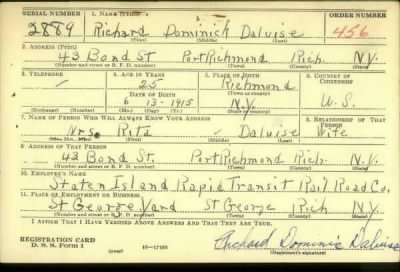 SERIAL NUMBER 1. NAME (Print) ORDER NUMBER
2889 Richard Dominick Daluise 456
(First) (Middle) (Last)
2. ADDRESS (Print)
43 Bond St Port Richmond Rich N.Y.
(Number and street or R. F. D. number) (Town) (County) (State)
3. TELEPHONE 4. AGE IN YEARS 5. PLACE OF BIRTH 6. COUNTRY OF CITIZENSHIP
— 25 Richmond
DATE OF BIRTH (Town or county)
6-13-1915 N.Y. U.S.
(Exchange) (Number) (Mo.) (Day) (Yr.) (State or country)
7. NAME OF PERSON WHO WILL ALWAYS KNOW YOUR ADDRESS 8. RELATIONSHIP OF THAT PERSON
Mrs. Rita — Daluise Wife
(Mr., Mrs., Miss) (First) (Middle) (Last)
9. ADDRESS OF THAT PERSON
43 Bond St. Port Richmond Rich- N.Y.
(Number and street or R. F. D. number) (Town) (County) (State)
10. EMPLOYER'S NAME
Staten Island Rapid Transit Rail Road Co.
11. PLACE OF EMPLOYMENT OR BUSINESS
St George Yard St George Rich N.Y.
(Number and street or R. F. D. number) (Town) (County) (State)
I AFFIRM THAT I HAVE VERIFIED ABOVE ANSWERS AND THAT THEY ARE TRUE.
REGISTRATION CARD
D. S. S. Form 1 16—17105 Richard Dominic Daluise
(over) (Registrant's signature)